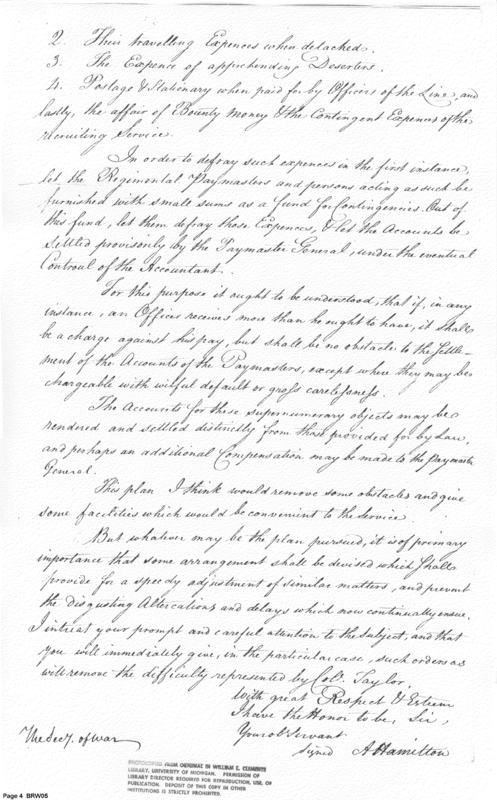 2. Their travelling Expences when detached.
3. The Expence of apprehending Deserters.
4. Postage & Stationary when paid for by Officers of the Line, and
lastly, the affair of Bounty Money & the Contingent Expences of the
recruiting Service.
In order to defray such expences in the first instance,
let the Regimental Paymasters and persons acting as such be
furnished with small sums as a fund for Contingencies. Out of
this fund, let them defray those Expences, & let the Accounts be
settled provisorily by the Paymaster General, under the eventual
Controul of the Accountant.
For this purpose it ought to be understood, that if, in any
instance, an Officer receives more than he ought to have, it shall
be a charge against his pay, but shall be no obstacle to the Settle-
ment of the Accounts of the Paymasters, except where they may be
chargeable with wilful default or gross carelessness.
The Accounts for these supernumerary objects may be
rendered and settled distinctly from those provided for by Law,
and perhaps an additional Compensation may be made to the Paymaster
General.
This plan I think would remove some obstacles and give
some facilities which would be convenient to the Service.
But whatever may be the plan pursued, it is of primary
importance that some arrangement shall be devised which shall
provide for a speedy adjustment of similar matters, and prevent
the disgusting Altercations and delays which now continually ensue.
I intreat your prompt and careful attention to the Subject, and that
you will immediately give, in the particular case, such orders as
will remove the difficulty represented by Col. Taylor.
With great Respect & Esteem
I have the Honor to be, Sir,
Your ob Servant
signed A Hamilton
The Secy. of War
PHOTOCOPIED FROM ORIGINAL IN WILLIAM L. CLEMENTS
LIBRARY, UNIVERSITY OF MICHIGAN. PERMISSION OF
LIBRARY DIRECTOR REQUIRED FOR REPRODUCTION, USE, OR
PUBLICATION. DEPOSIT OF THIS COPY IN OTHER
INSTITUTIONS IS STRICTLY PROHIBITED.
Page 4 BRW05